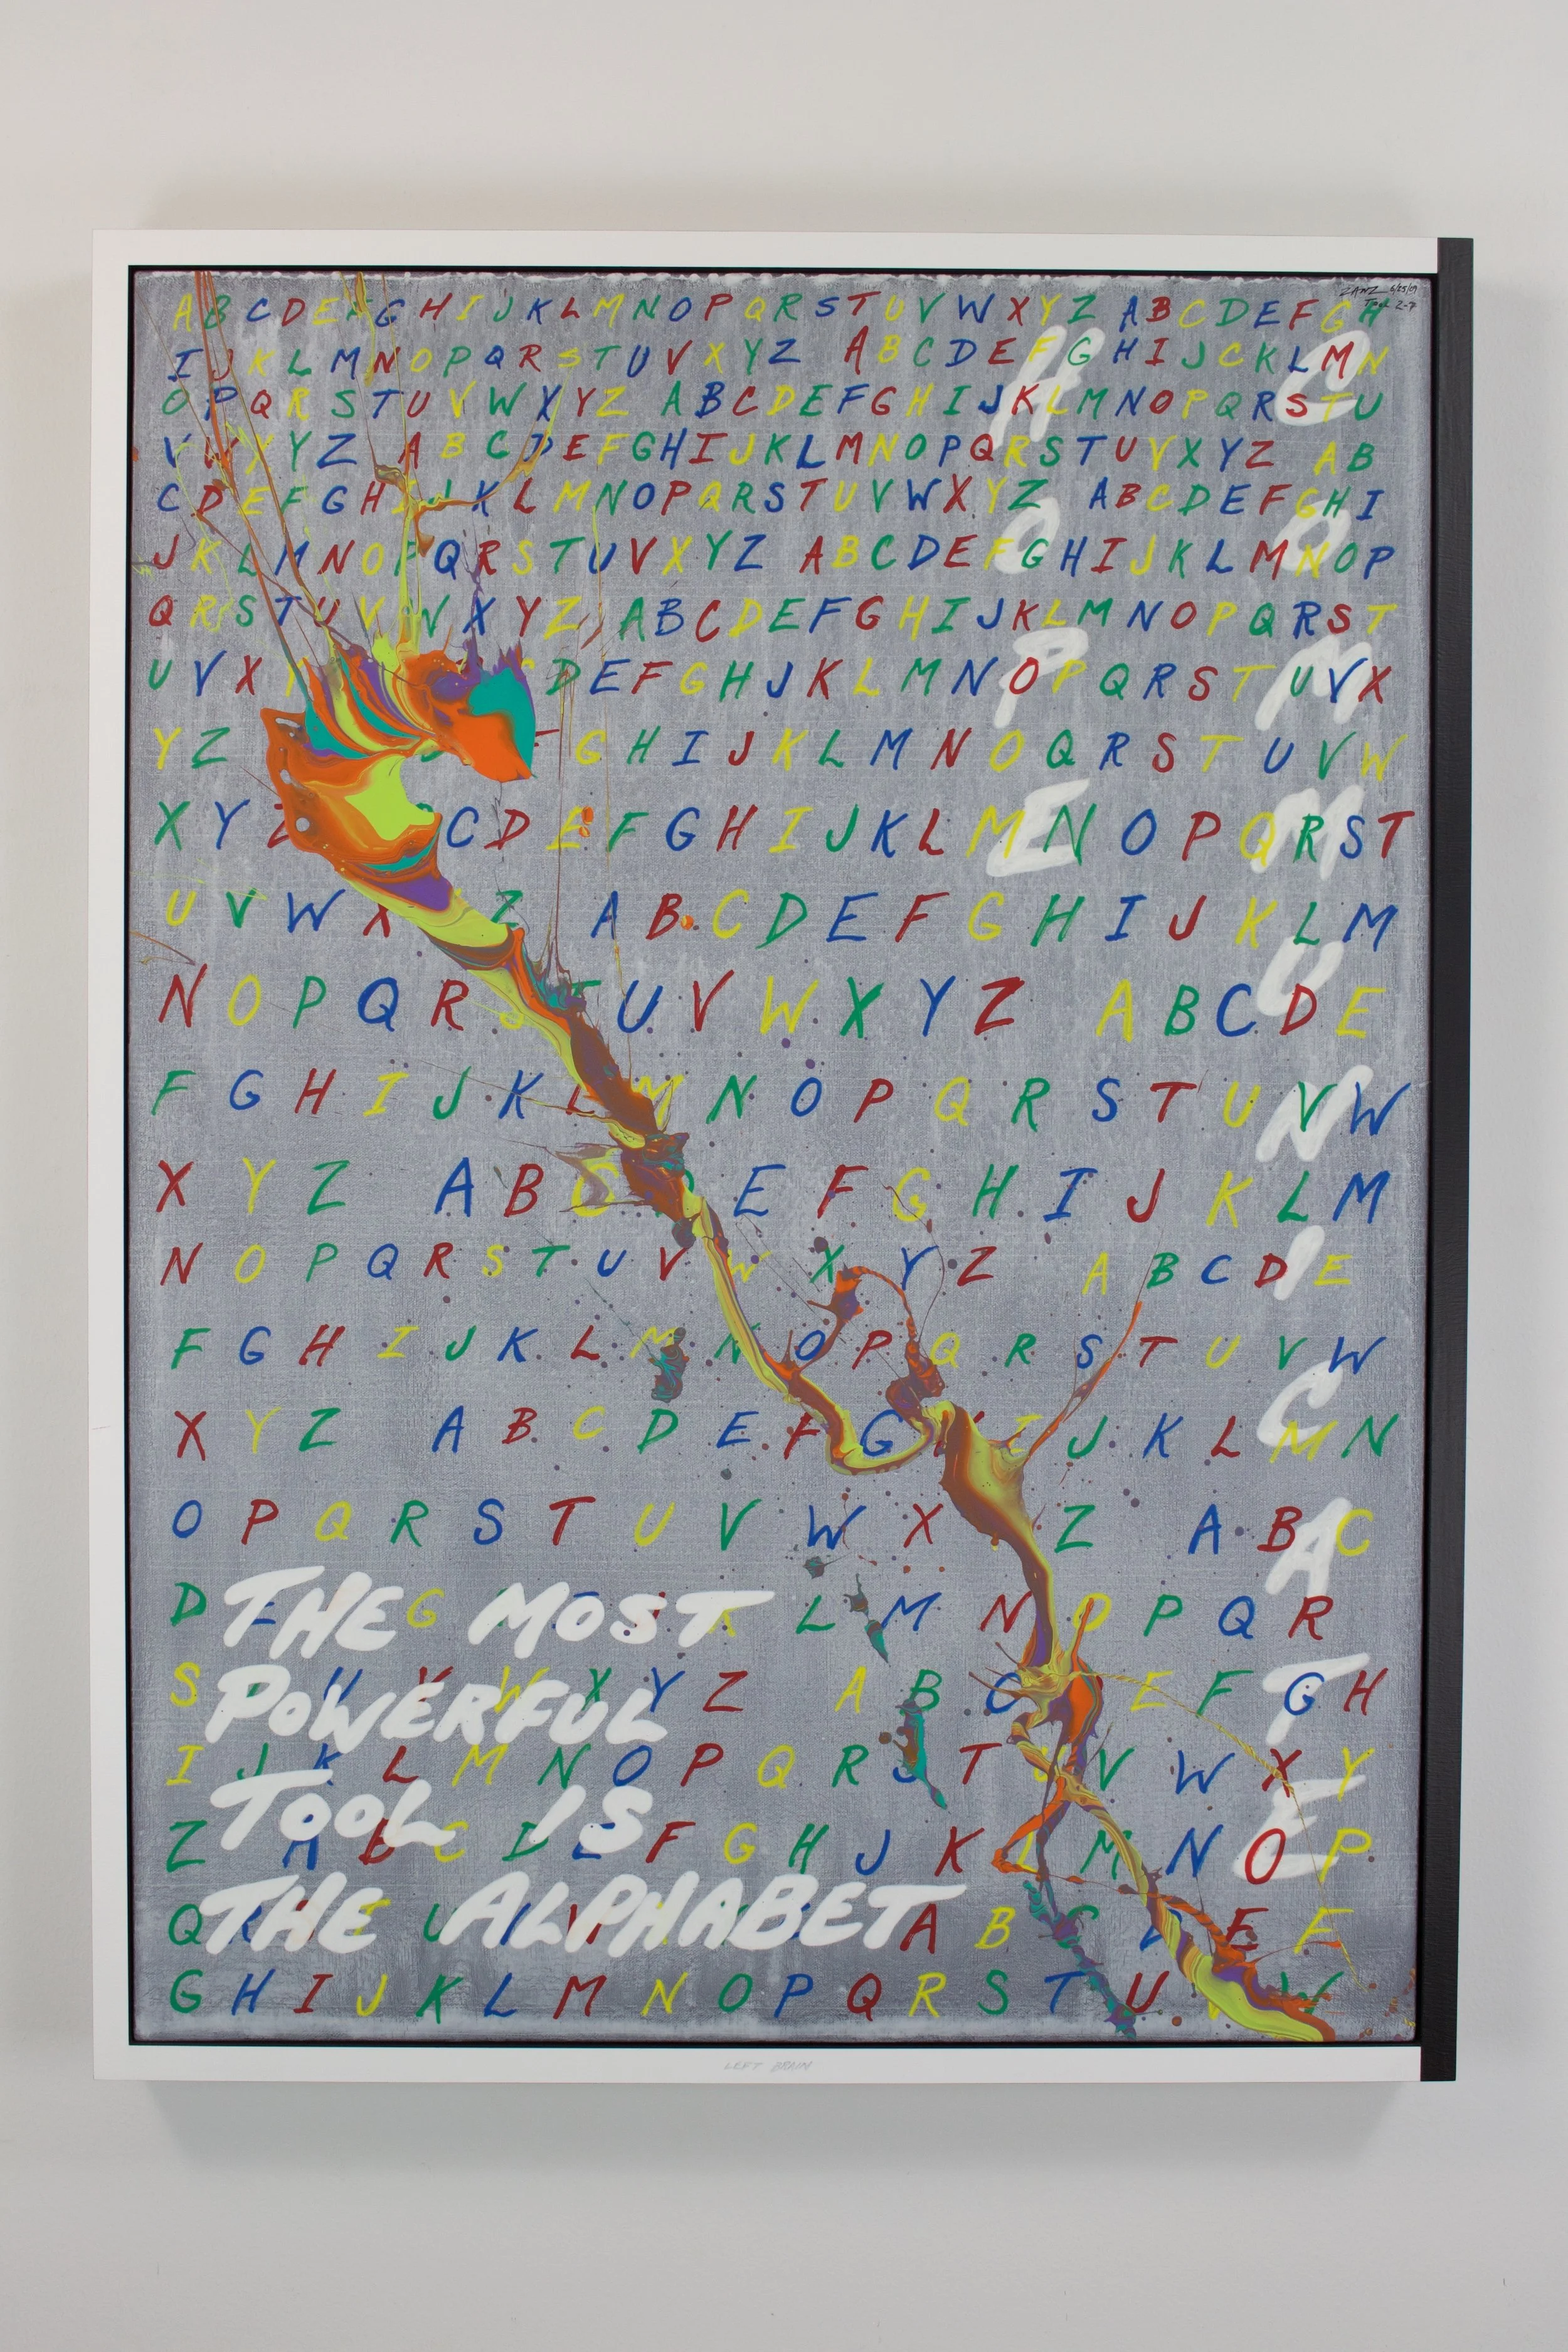 ZANZ 6/25/09
A B C D E F G H I J K L M N O P Q R S T U V W X Y Z A B C D E F G H
I J K L M N O P Q R S T U V X Y Z A B C D E F G H I J C K L M N
O P Q R S T U V W X Y Z A B C D E F G H I J K L M N O P Q R S T U
V W X Y Z A B C D E F G H I J K L M N O P Q R S T U V X Y Z A B
C D E F G H I J K L M N O P Q R S T U V W X Y Z A B C D E F G H I
J K L M N O P Q R S T U V X Y Z A B C D E F G H I J K L M N O P
Q R S T U V W X Y Z A B C D E F G H I J K L M N O P Q R S T
U V X Y D E F G H J K L M N O P Q R S T U V X
Y Z G H I J K L M N O Q R S T U V W
X Y Z C D E F G H I J K L M N O P Q R S T
U V W X Z A B C D E F G H I J K L M
N O P Q R S T U V W X Y Z A B C D E
F G H I J K L M N O P Q R S T U V W
X Y Z A B C E F G H I J K L M
N O P Q R S T U V W X Y Z A B C D E
F G H I J K L M N O P Q R S T U V W
X Y Z A B C D E F G I J K L M N
O P Q R S T U V W X Z A B C
D E G L M N O P Q R
S V W X Y Z A B C E F G H
I J K L M N O P Q R T V W X Y
Z A B C D E F G H J K L M N O P
Q A B C D E F
G H I J K L M N O P Q R S T U V W
HOPE
COMMUNICATE
THE MOST
POWERFUL
TOOL IS
THE ALPHABET
LEFT BRAIN